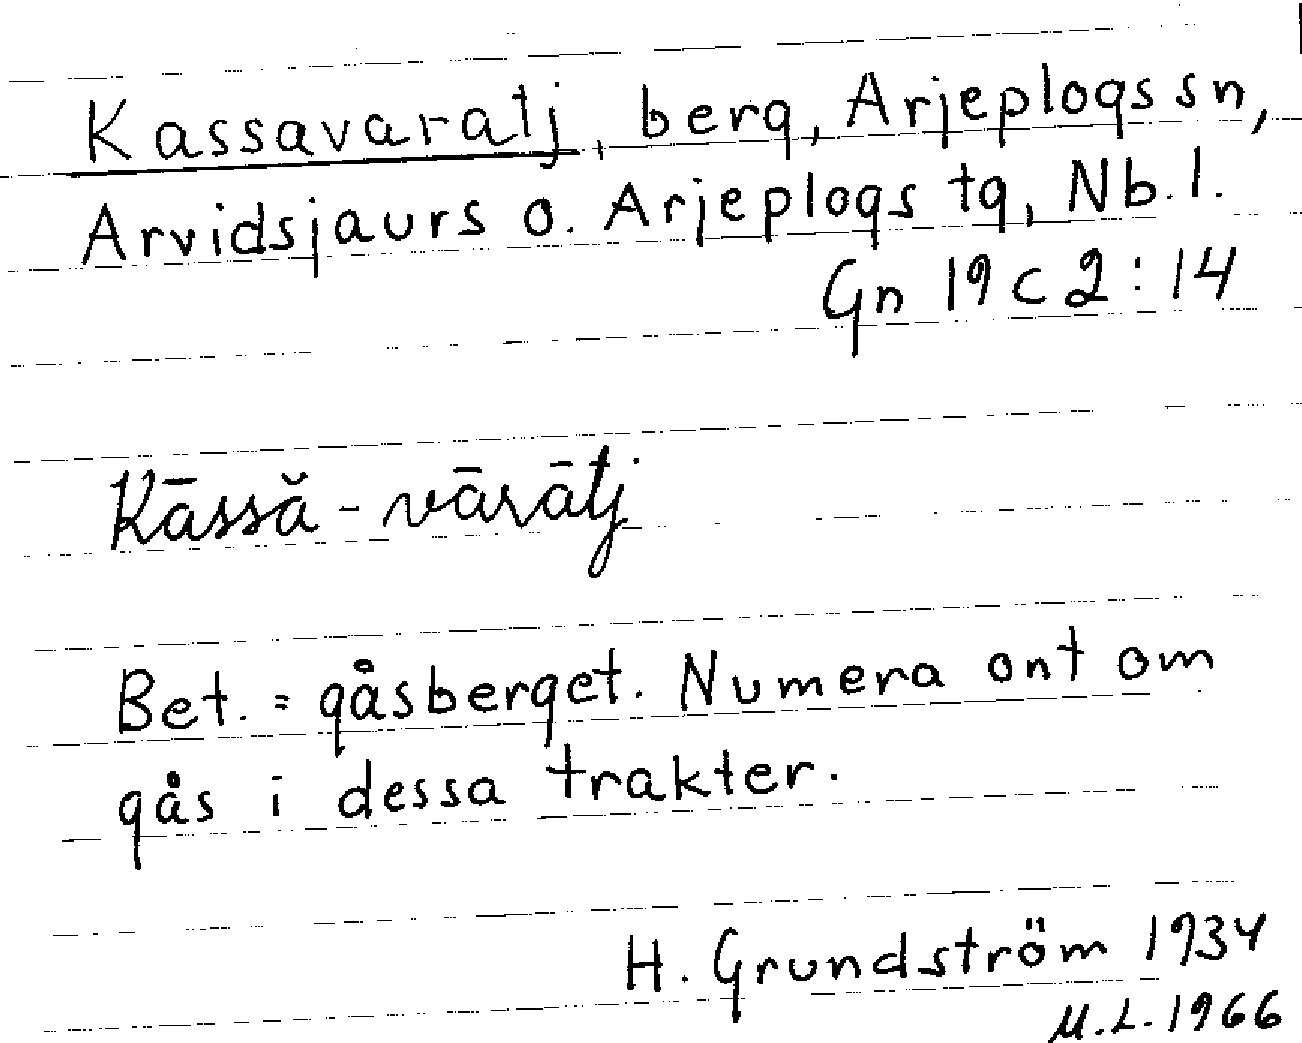 Kassavaratj, berg, Arjeplogs sn,
Arvidsjaurs o. Arjeplogs tg, Nb. l.
Gn 19 c 2:14
Kāssă-vārātj
Bet. = gåsberget. Numera ont om
gås i dessa trakter.
H. Grundström 1934
M.L. 1966